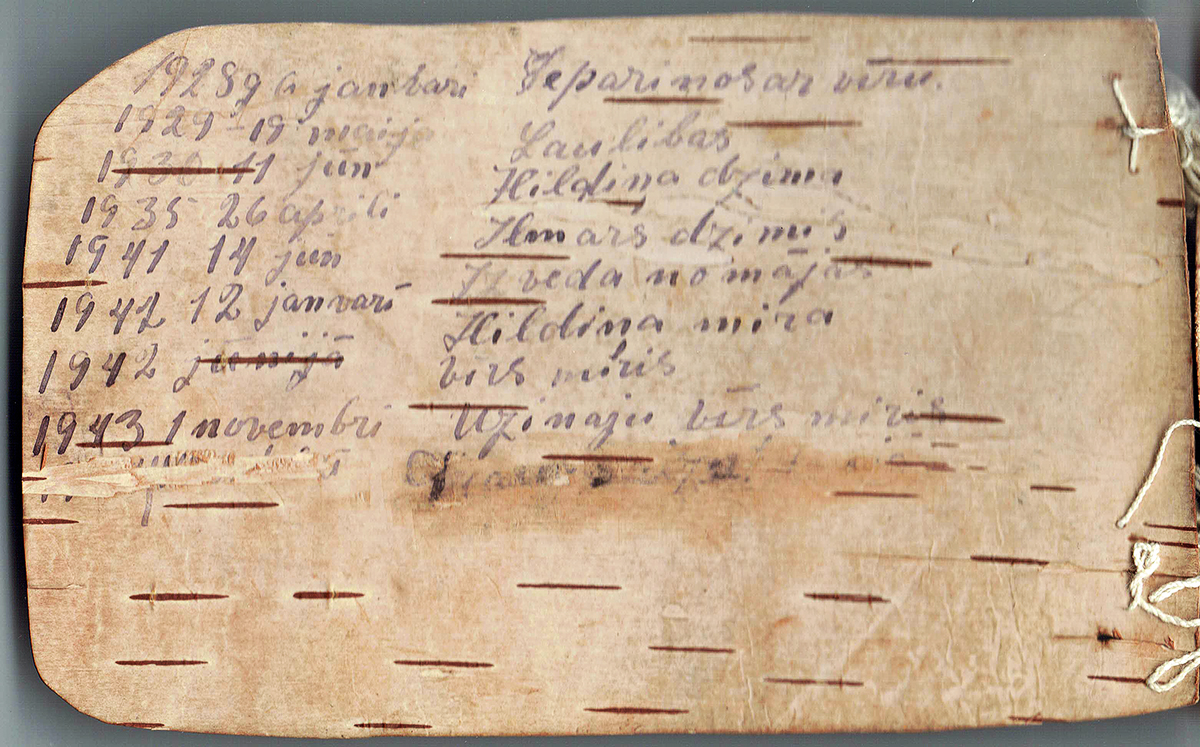 1928g 6 janvari Iepazinos ar vīru.
1929 - 19 maijā Laulibas
1930 11 jūn Hildiņa dzima
1935 26 aprilī Ilmārs dzimis
1941 14 jūn Izveda no mājas
1942 12 janvarī Hildiņa mira
1942 jūnijā vīrs miris
1943 1 novembri Uzinaju vīrs miris